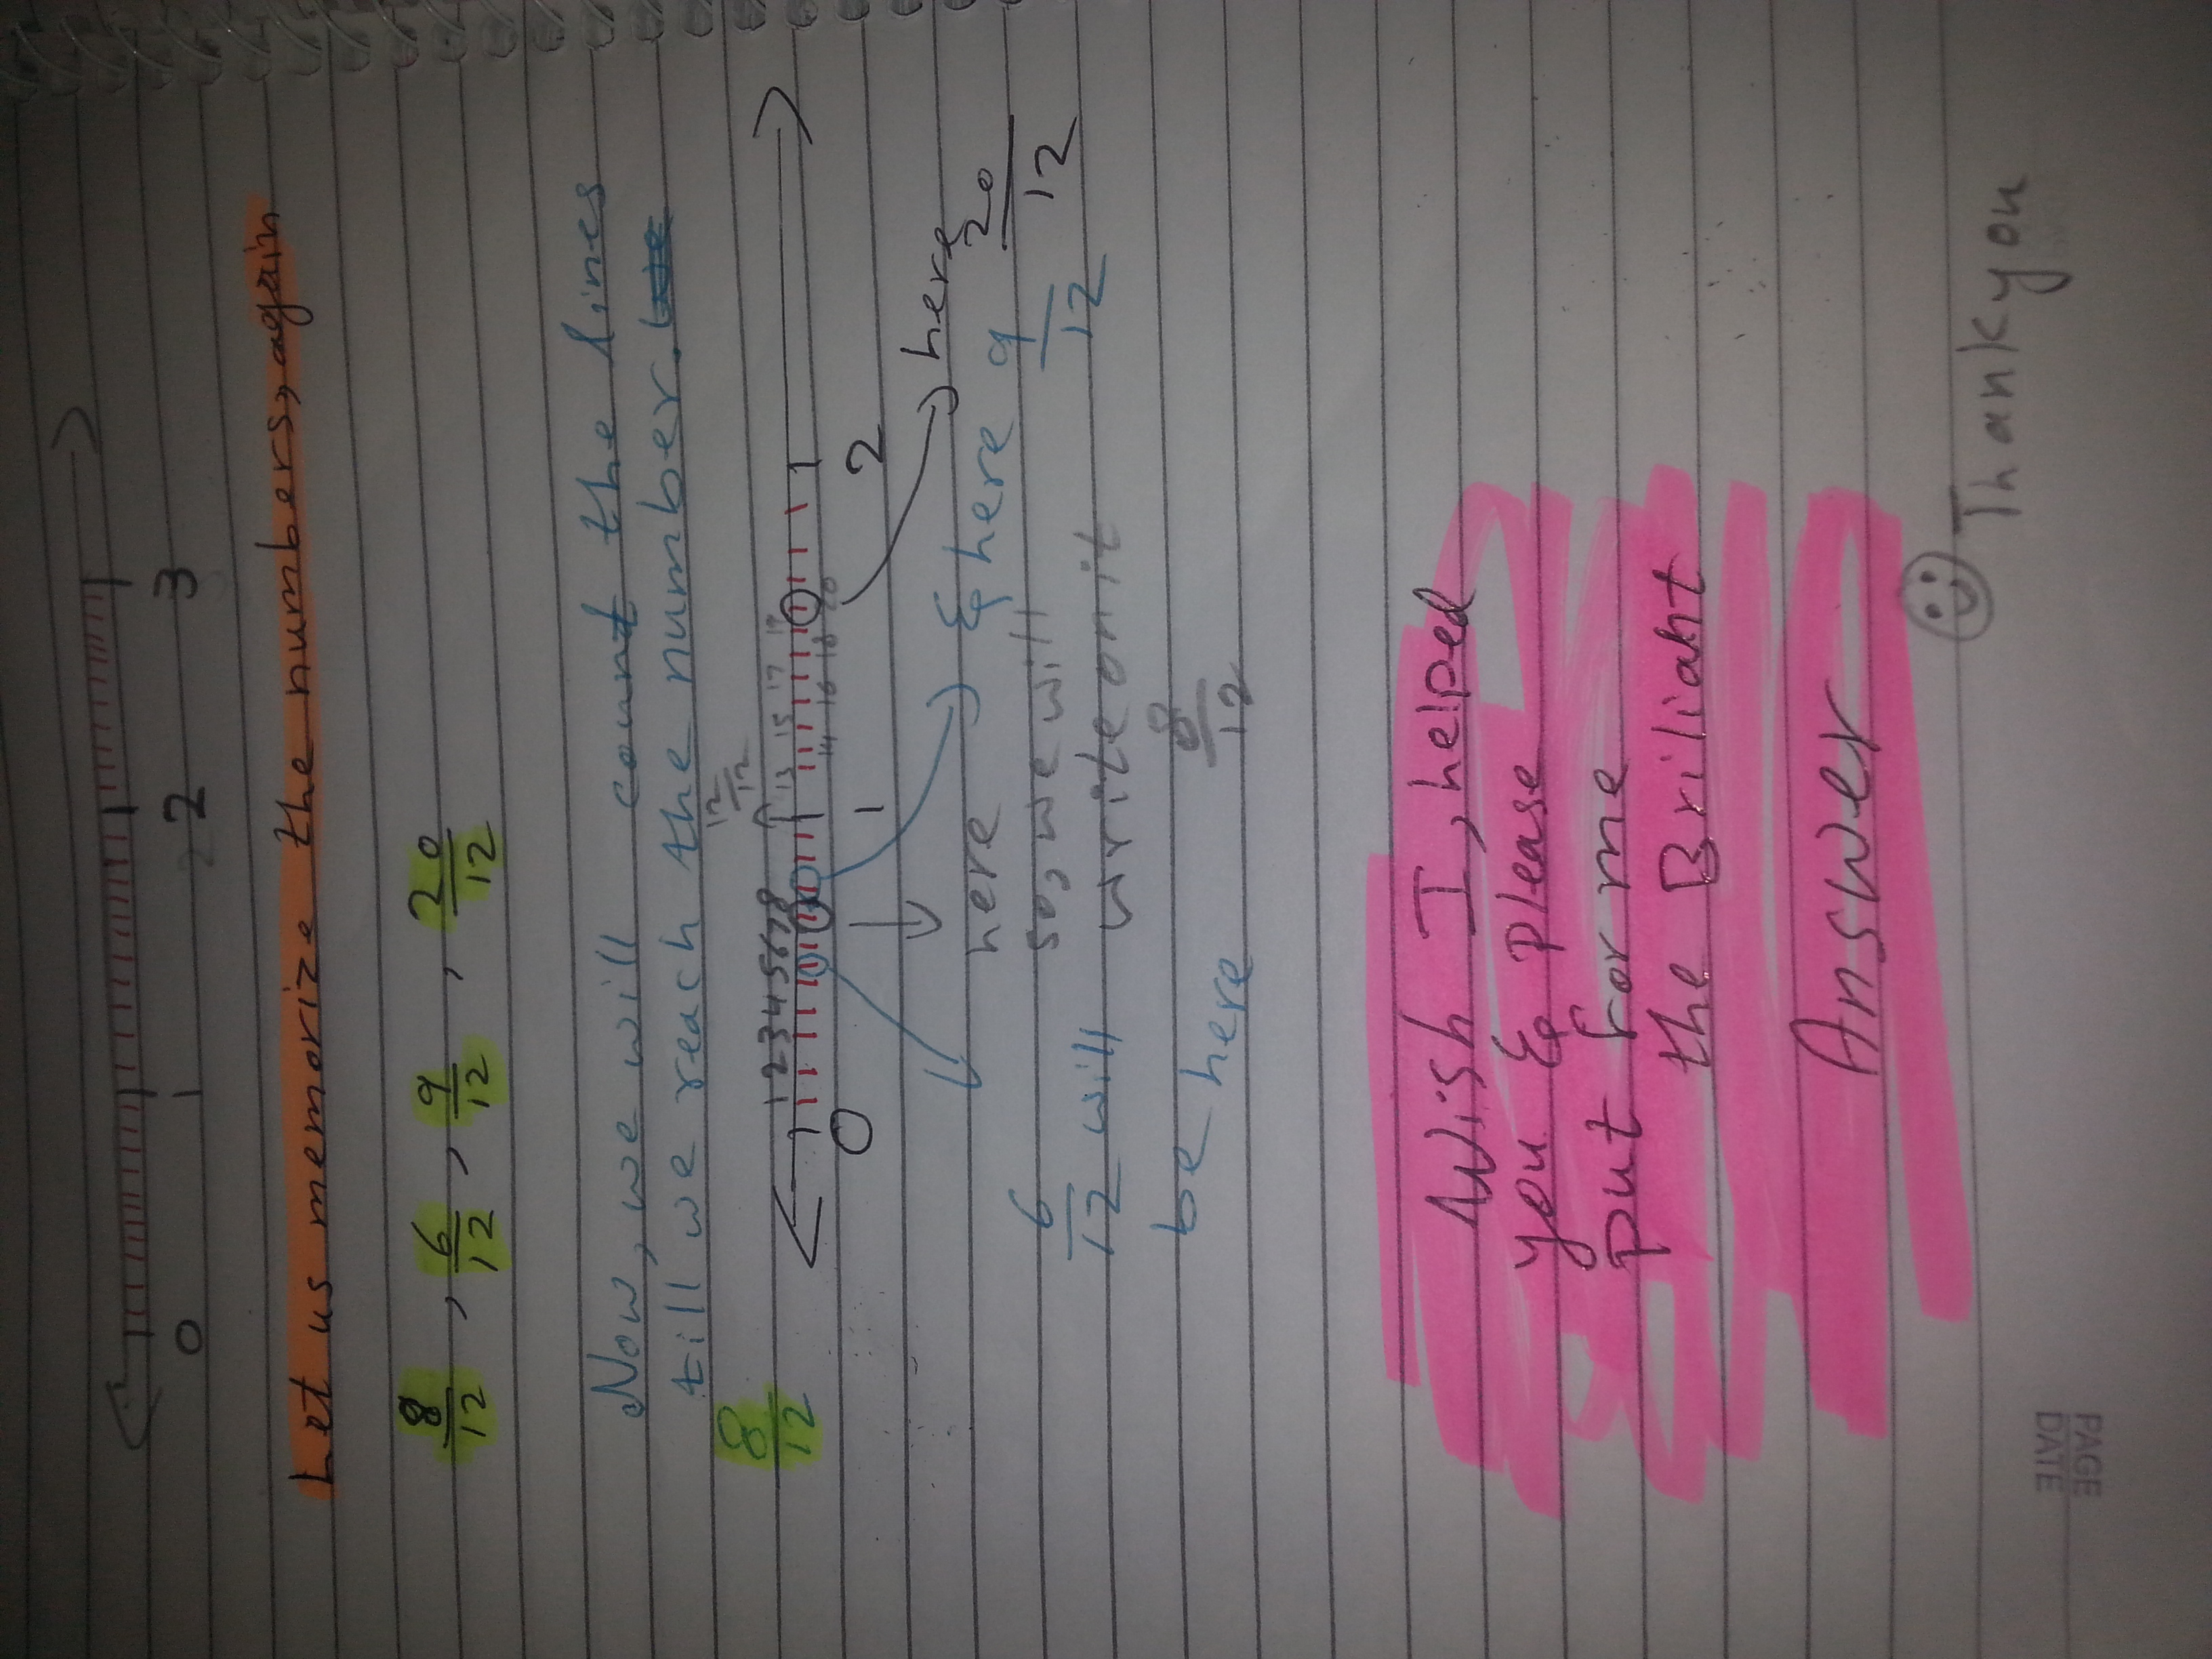 0 1 2 3
Let us memorize the numbers, again
8/12 , 6/12 , 9/12 , 20/12
Now, we will count the lines
till we reach the number.
8/12
12/12
1 2 3 4 5 6 7 8 13 15 17 19
14 16 18 20
0 1 2
here & here 9/12
here 20/12
so, we will
write on it
8/12
6/12 will
be here
Wish I, helped
you & please
put for me
the Briliant
Answer
Thank you
PAGE
DATE